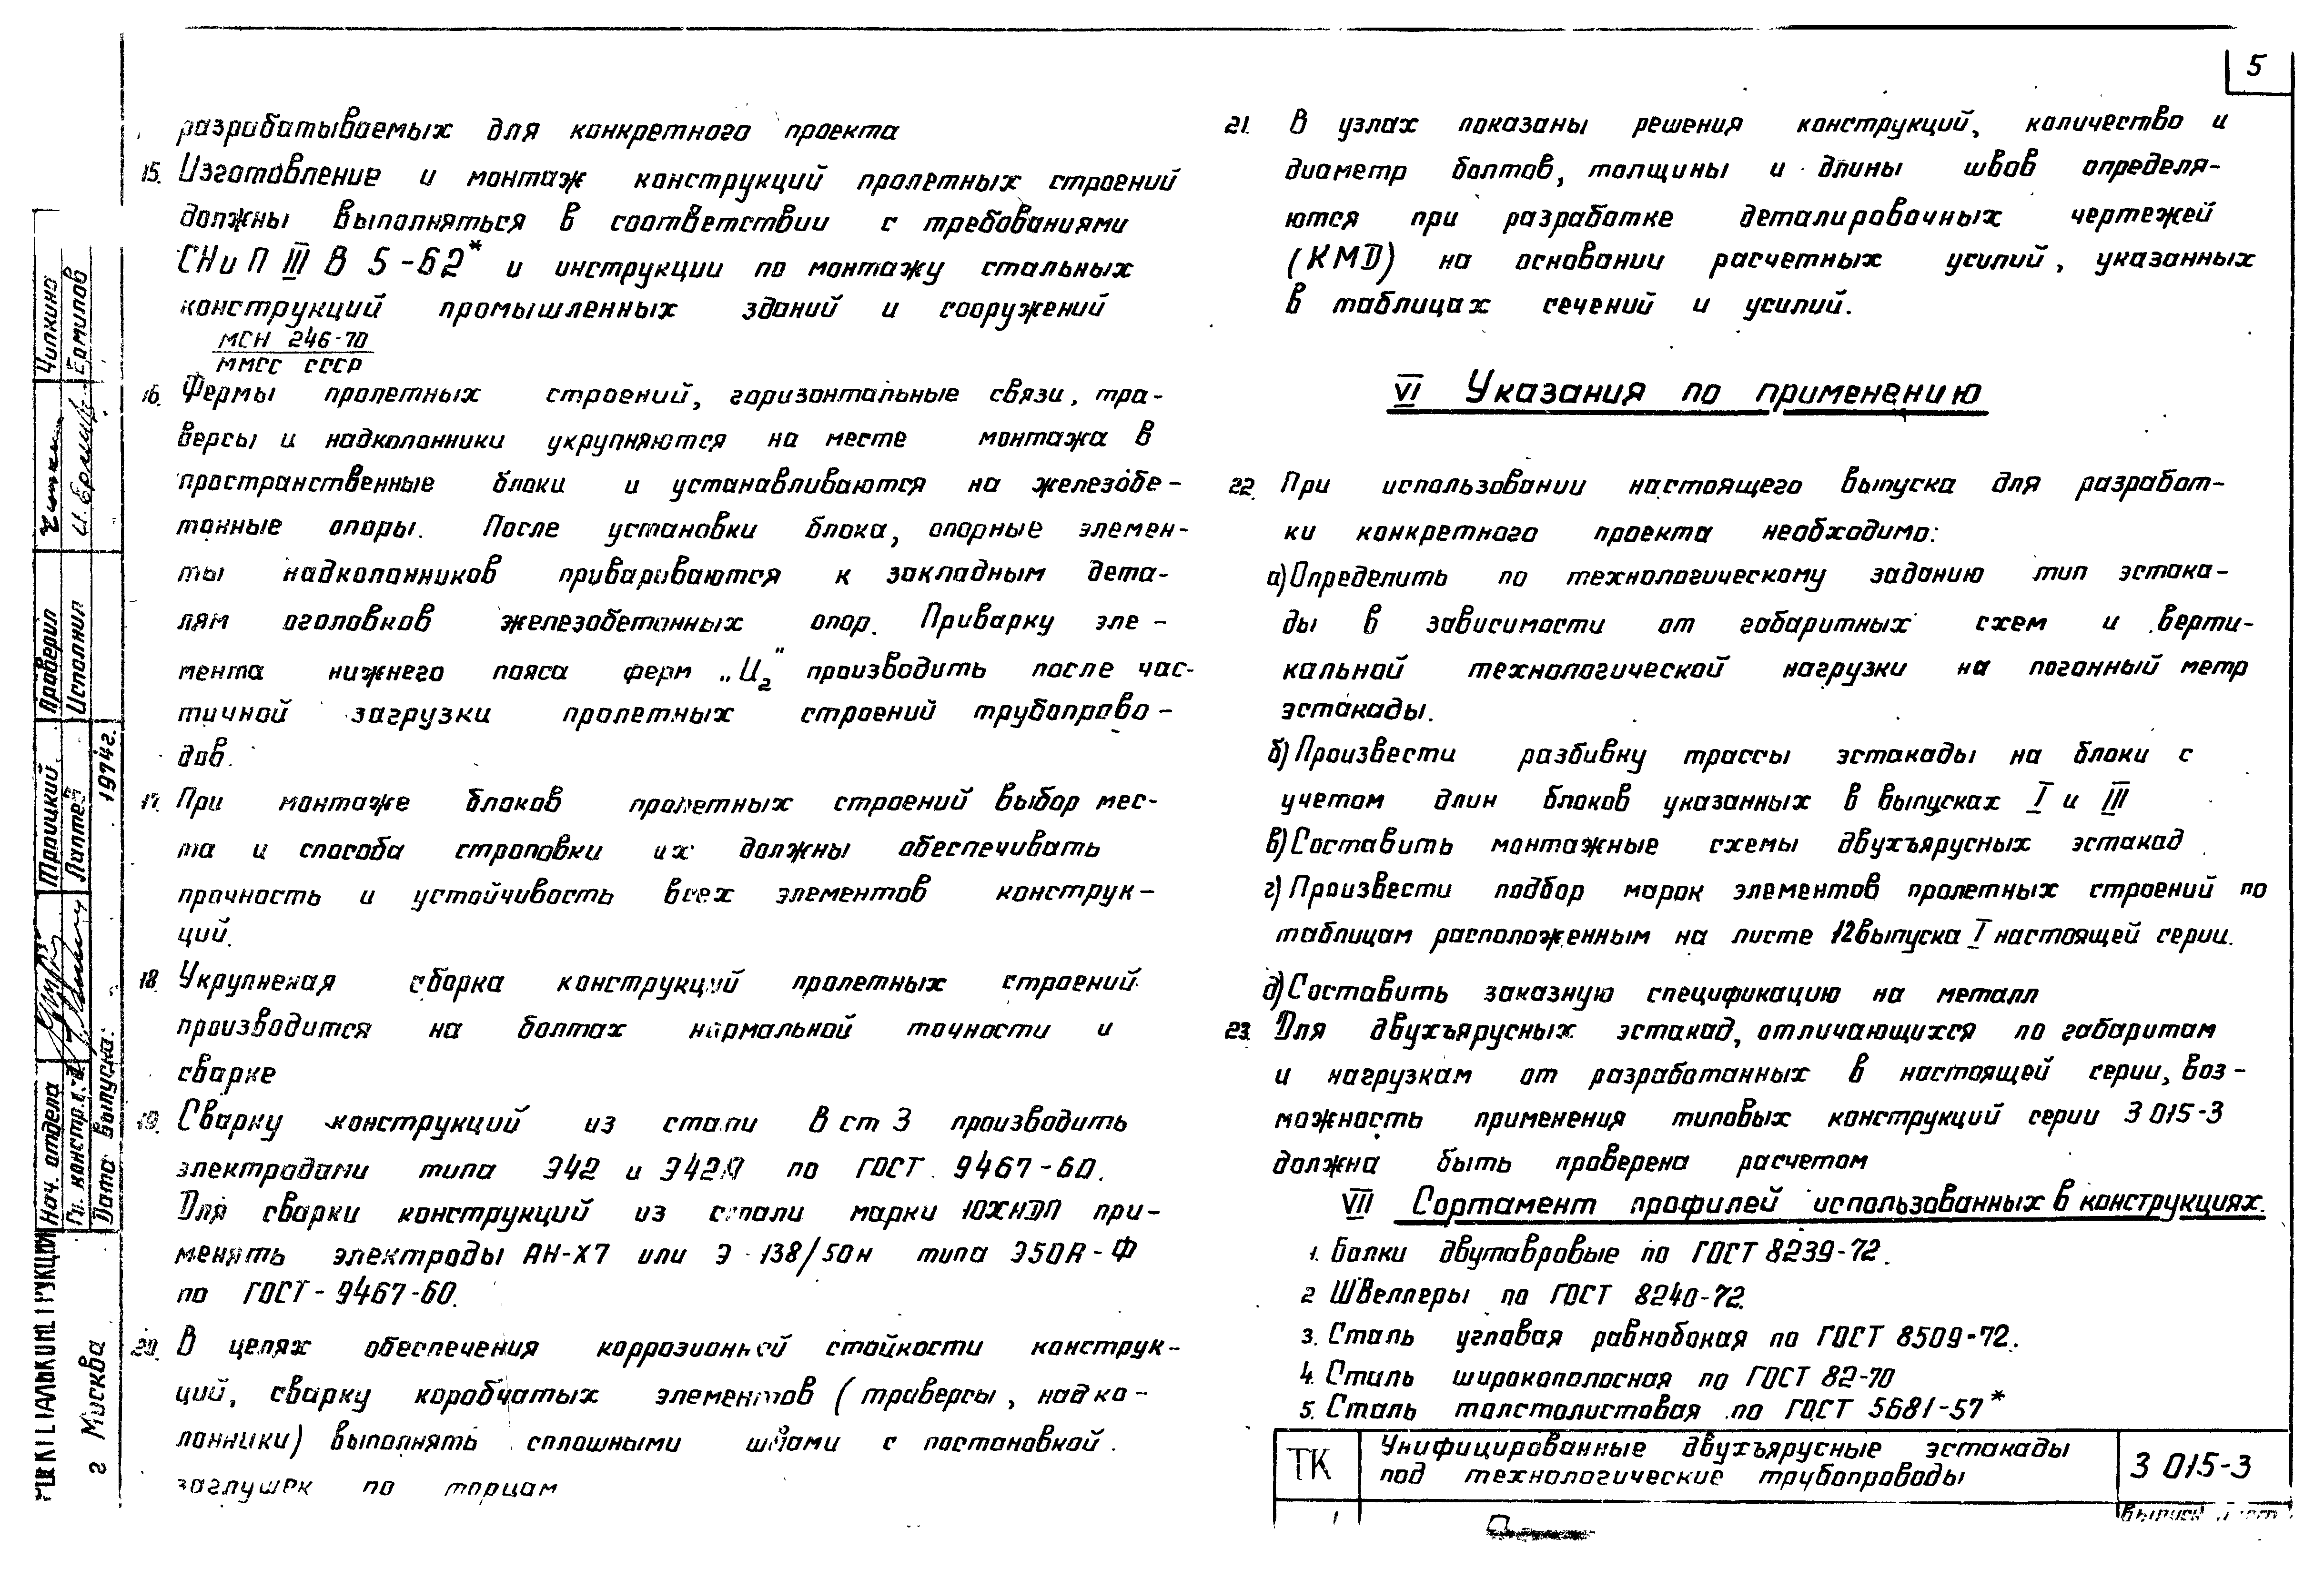 5
разрабатываемых для конкретного проекта
15. Изготовление и монтаж конструкций пролетных строений
должны выполняться в соответствии с требованиями
СНиП III В 5-62* и инструкции по монтажу стальных
конструкций промышленных зданий и сооружений
МСН 246-70
ММСС СССР
16. Фермы пролетных строений, горизонтальные связи, тра-
версы и надколонники укрупняются на месте монтажа в
пространственные блоки и устанавливаются на железобе-
тонные опоры. После установки блока, опорные элемен-
ты надколонников привариваются к закладным дета-
лям оголовков железобетонных опор. Приварку эле-
мента нижнего пояса ферм „И2" производить после час-
тичной загрузки пролетных строений трубопрово-
дов.
17. При монтаже блоков пролетных строений выбор мес-
та и способа строповки их должны обеспечивать
прочность и устойчивость всех элементов конструк-
ций.
18 Укрупненая сборка конструкций пролетных строений
производится на болтах нормальной точности и
сварке
19. Сварку конструкций из стали В ст 3 производить
электродами типа Э42 и Э42А по ГОСТ 9467-60.
Для сварки конструкций из стали марки 10ХНДП при-
менять электроды АН-Х7 или Э-138/50н типа Э50А-Ф
по ГОСТ-9467-60.
20. В целях обеспечения коррозионной стойкости конструк-
ций, сварку коробчатых элементов (траверсы, надко-
лонники) выполнять сплошными швами с постановкой
заглушек по торцам
21. В узлах показаны решения конструкций, количество и
диаметр болтов, толщины и длины швов определя-
ются при разработке деталировочных чертежей
(КМД) на основании расчетных усилий, указанных
в таблицах сечений и усилий.
VI Указания по применению
22. При использовании настоящего выпуска для разработ-
ки конкретного проекта необходимо:
а) Определить по технологическому заданию тип эстака-
ды в зависимости от габаритных схем и верти-
кальной технологической нагрузки на погонный метр
эстакады.
б) Произвести разбивку трассы эстакады на блоки с
учетом длин блоков указанных в выпусках I и III
в) Составить монтажные схемы двухъярусных эстакад
г) Произвести подбор марок элементов пролетных строений по
таблицам расположенным на листе 12 выпуска I настоящей серии.
д) Составить заказную спецификацию на металл
23. Для двухъярусных эстакад, отличающихся по габаритам
и нагрузкам от разработанных в настоящей серии, воз-
можность применения типовых конструкций серии 3 015-3
должна быть проверена расчетом
VII Сортамент профилей использованных в конструкциях.
1. Балки двутавровые по ГОСТ 8239-72.
2 Швеллеры по ГОСТ 8240-72.
3. Сталь угловая равнобокая по ГОСТ 8509-72.
4. Сталь широкополосная по ГОСТ 82-70
5. Сталь толстолистовая по ГОСТ 5681-57*
ТК
Унифицированные двухъярусные эстакады
под технологические трубопроводы
3 015-3
Выпуск Лист
Нач. отдела Троицкий Проверил Ципкина
Гл. констр. Лаптев Исполнил Ермилов
Дата выпуска: 1974г.
г Москва